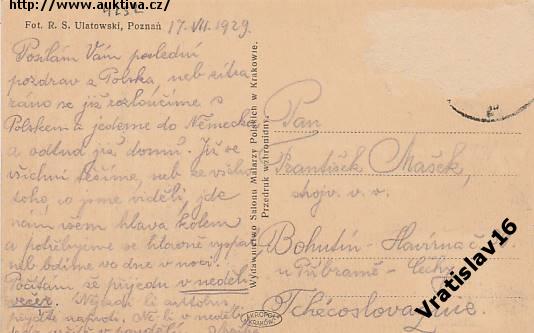 http://www.auktiva.cz/
4232
Fot. R. S. Ulatowski, Poznań
17. VII. 1929.
Posílám Vám poslední
pozdrav z Polska neb zítra
ráno se již rozloučíme s
Polskem a jedeme do Německa
a odtud již domů. Již se
všichni těšíme, neb ze všeho
toho, co jsme viděli, jde
nám všem hlava kolem
a potřebujeme se hlavně vyspat
neb bdíme ve dne v noci.
Počítám že přijedu v neděli
večer.
Wydawnictwo Salonu Malarzy Polskich w Krakowie.
Przedruk wzbroniony.
Pan
František Mašek,
stroj. v. v.
Bohutín - Havírna č
u Příbramě - Čechy
Tchécoslovaquie.
AKROPOL
KRAKÓW
Vratislav16